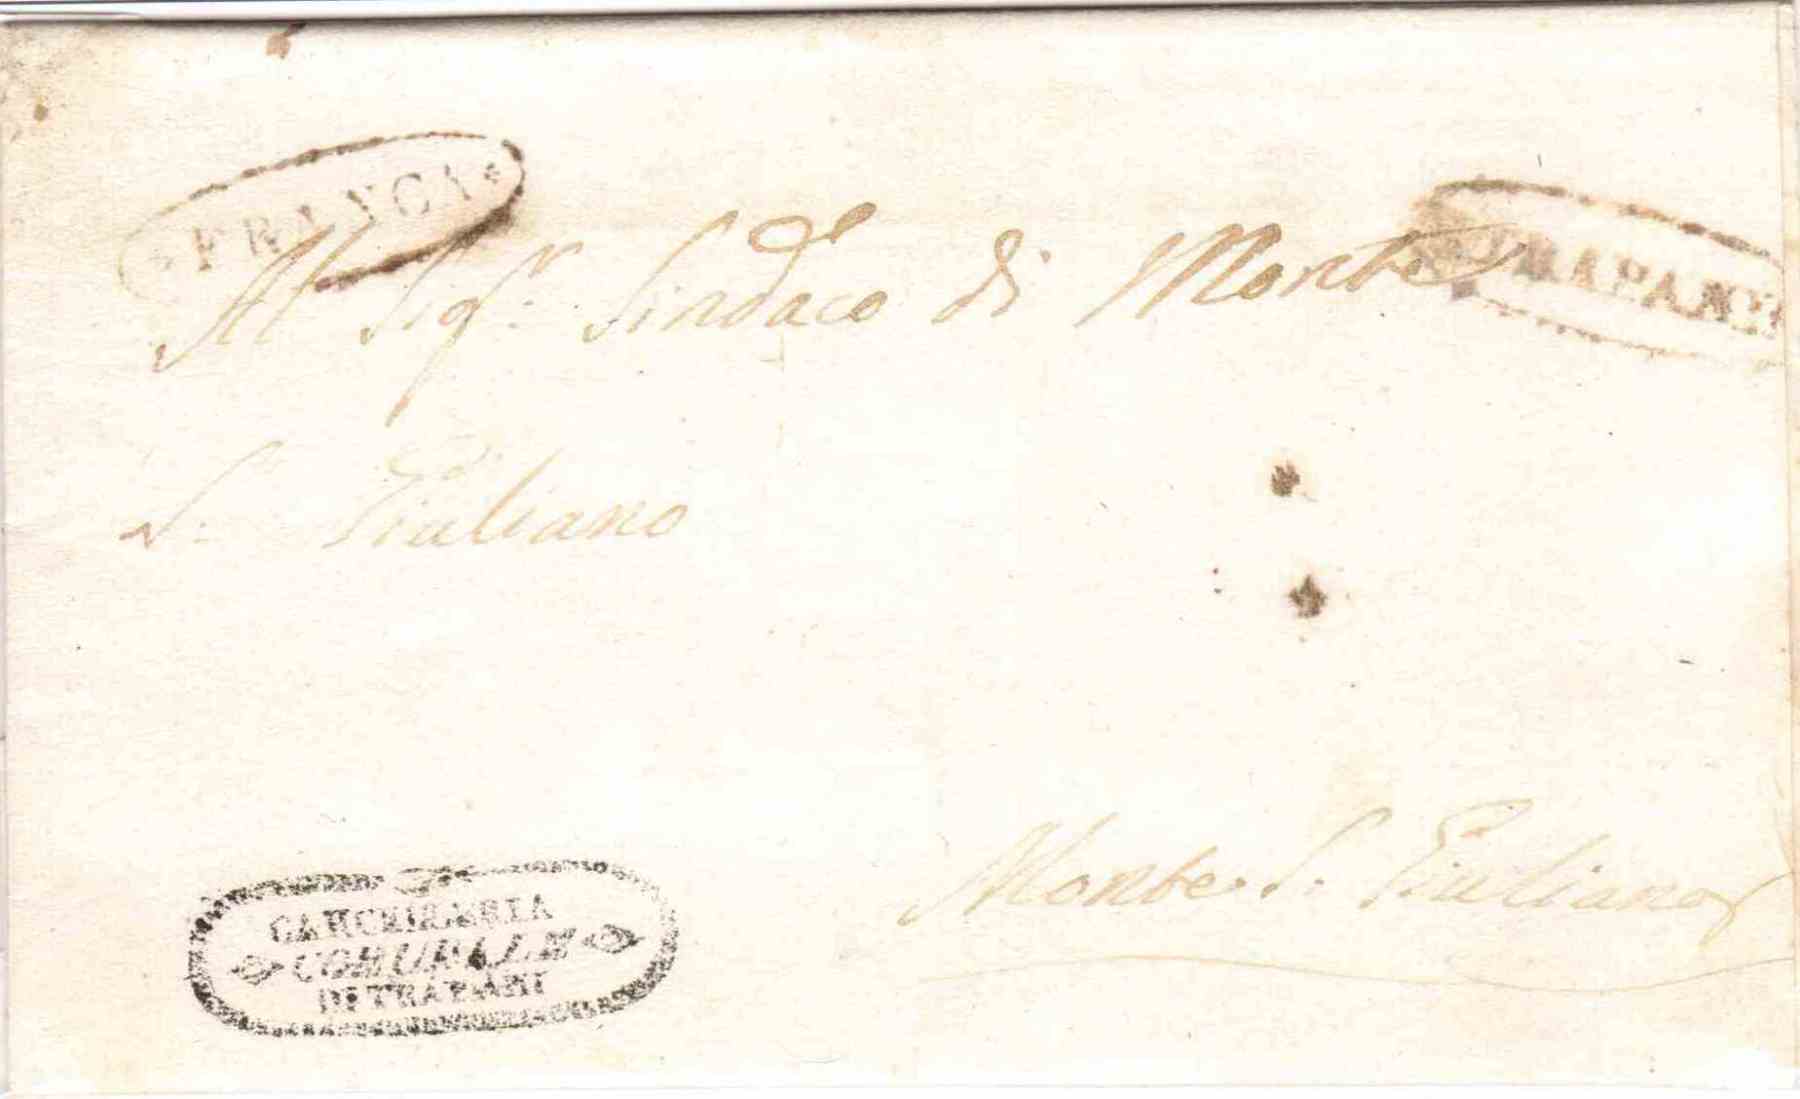 FRANCA
TRAPANI
Al Sigr. Sindaco di Monte
S. Giuliano
Monte S. Giuliano
CANCELLERIA
COMUNALE
DI TRAPANI